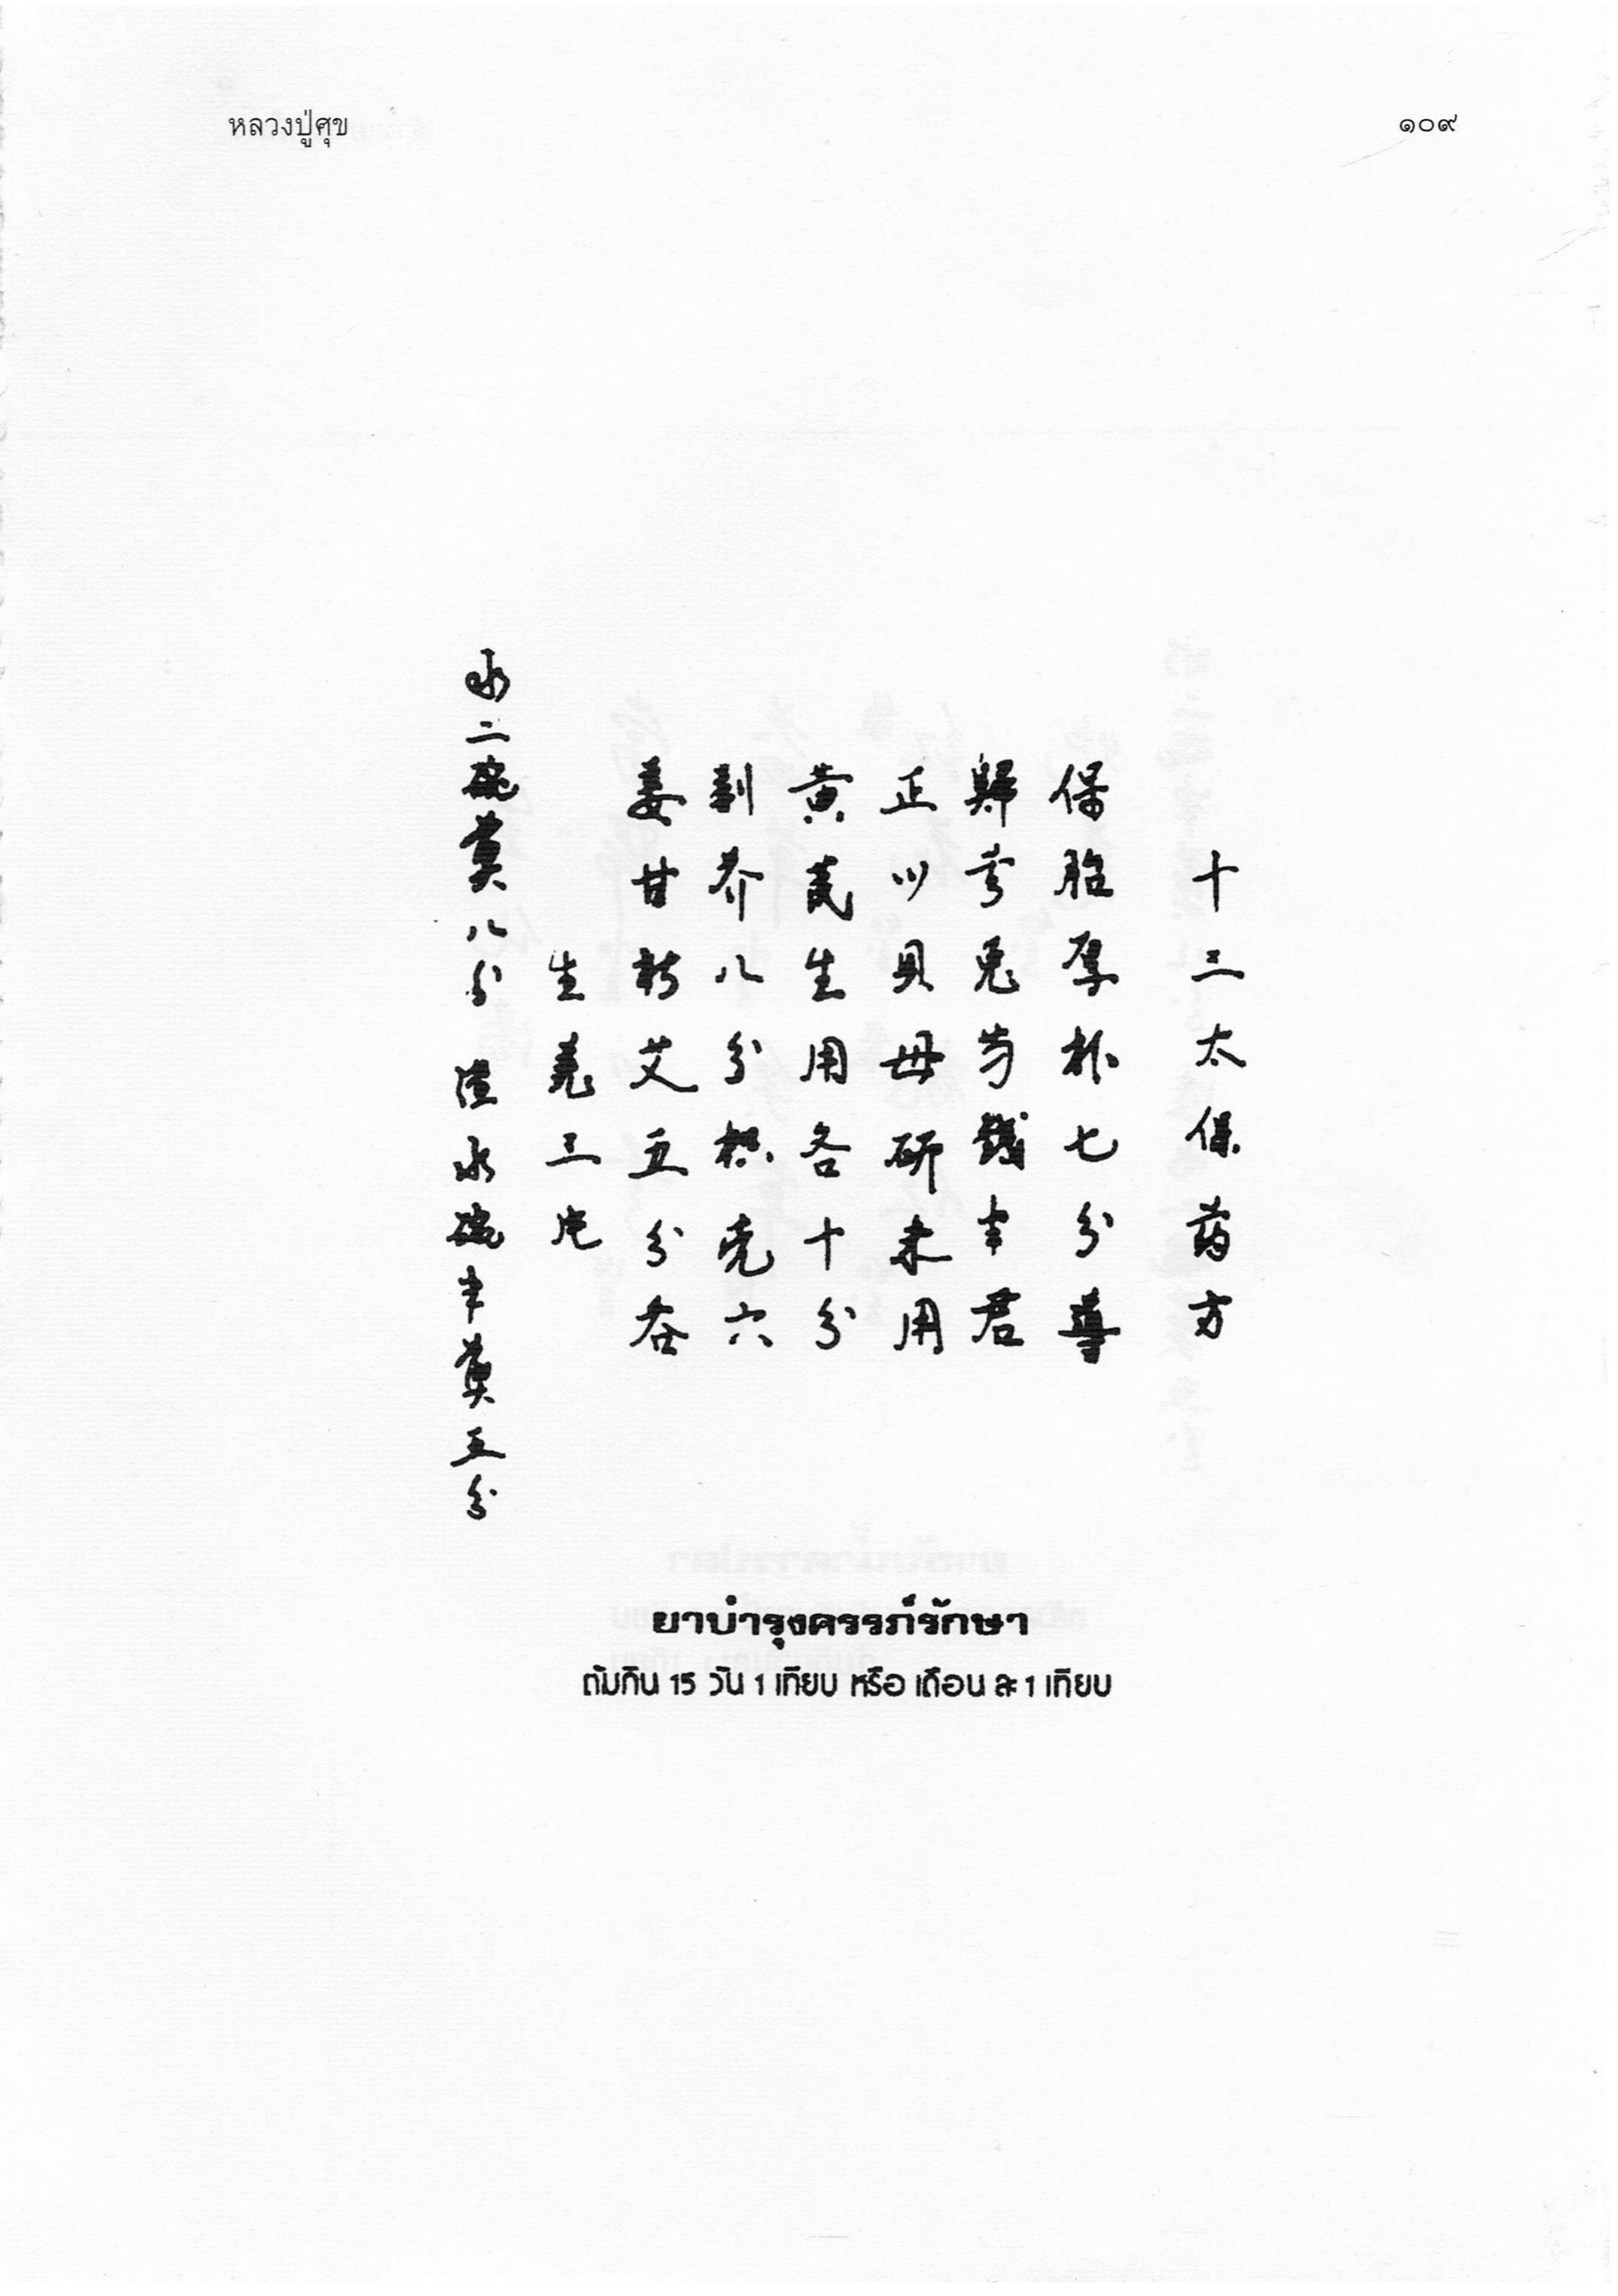 หลวงปู่ศุข
๑๐๙
十三太保药方
保胎厚朴七分尊
歸芎兎芳錢半君
正川貝母研末用
黄芪生用各十分
荆芥八分枳壳六
姜甘new艾五分
生羌三片
水二碗煎八分 渣水碗半煎五分
ยาบำรุงครรภ์รักษา
ต้มกิน 15 วัน 1 เทียบ หรือ เดือน ละ 1 เทียบ